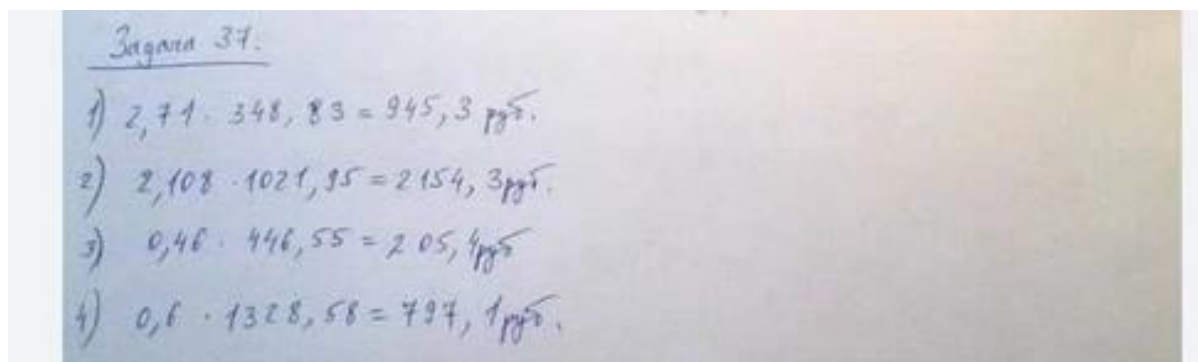 Задача 37.
1) 2,71 · 348,83 = 945,3 руб.
2) 2,108 · 1021,95 = 2154,3 руб.
3) 0,46 · 446,55 = 205,4 руб
4) 0,6 · 1328,58 = 797,1 руб.